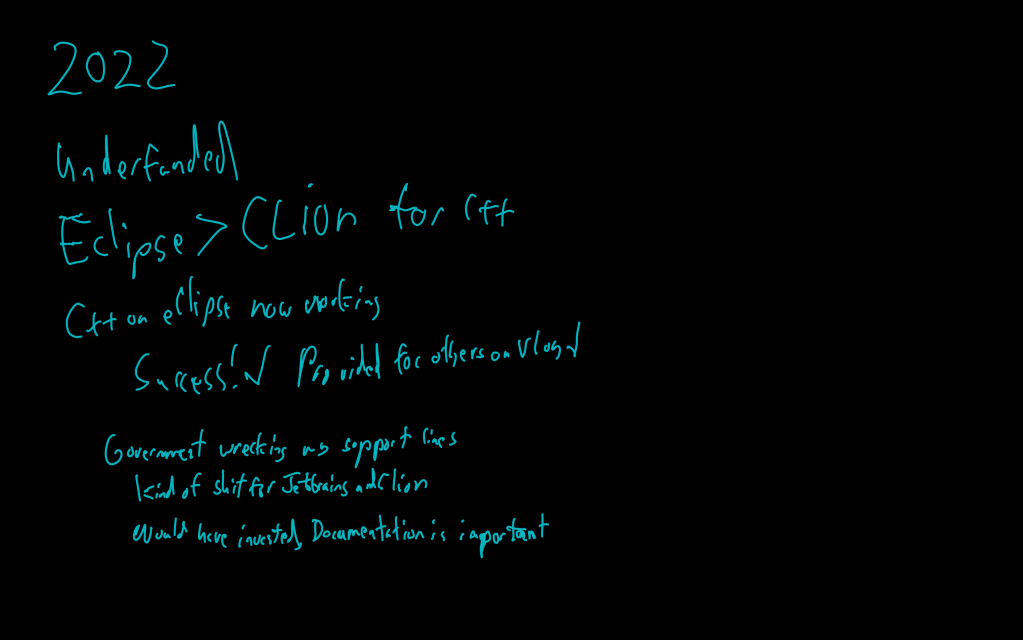 2022
Underfunded
Eclipse > CLion for C++
C++ on eclipse now working
Success!✓ Provided for others on Vlog✓
Government wrecking my support lines
kind of shit for Jetbrains and Clion
Would have invested, Documentation is important